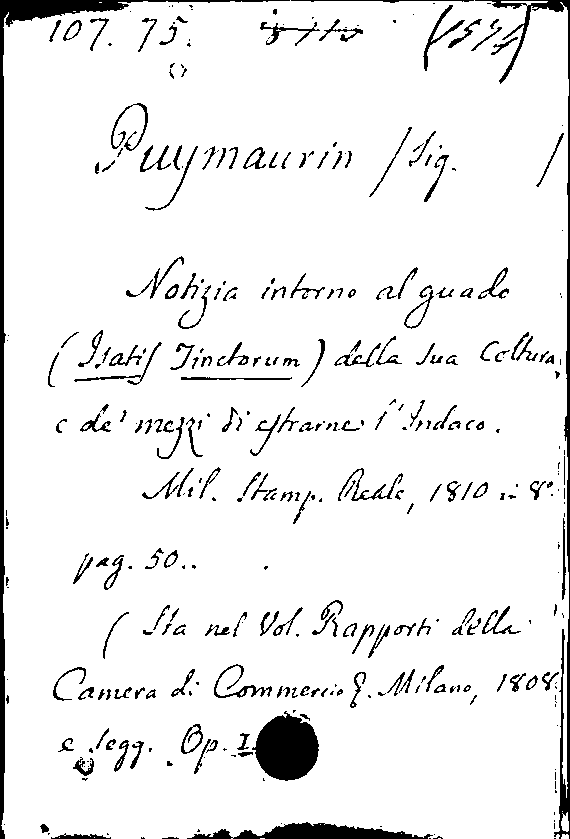 107. 75.
Puymaurin / Sig. /
Notizia intorno al guado
(Isatis Tinctorum) della sua Coltura,
e de' mezzi di estrarne l'Indaco.
Mil. Stamp. Reale, 1810 in 8°.
pag. 50..
( Sta nel Vol. Rapporti della
Camera di Commercio &. Milano, 1808
e segg. Op. 1.